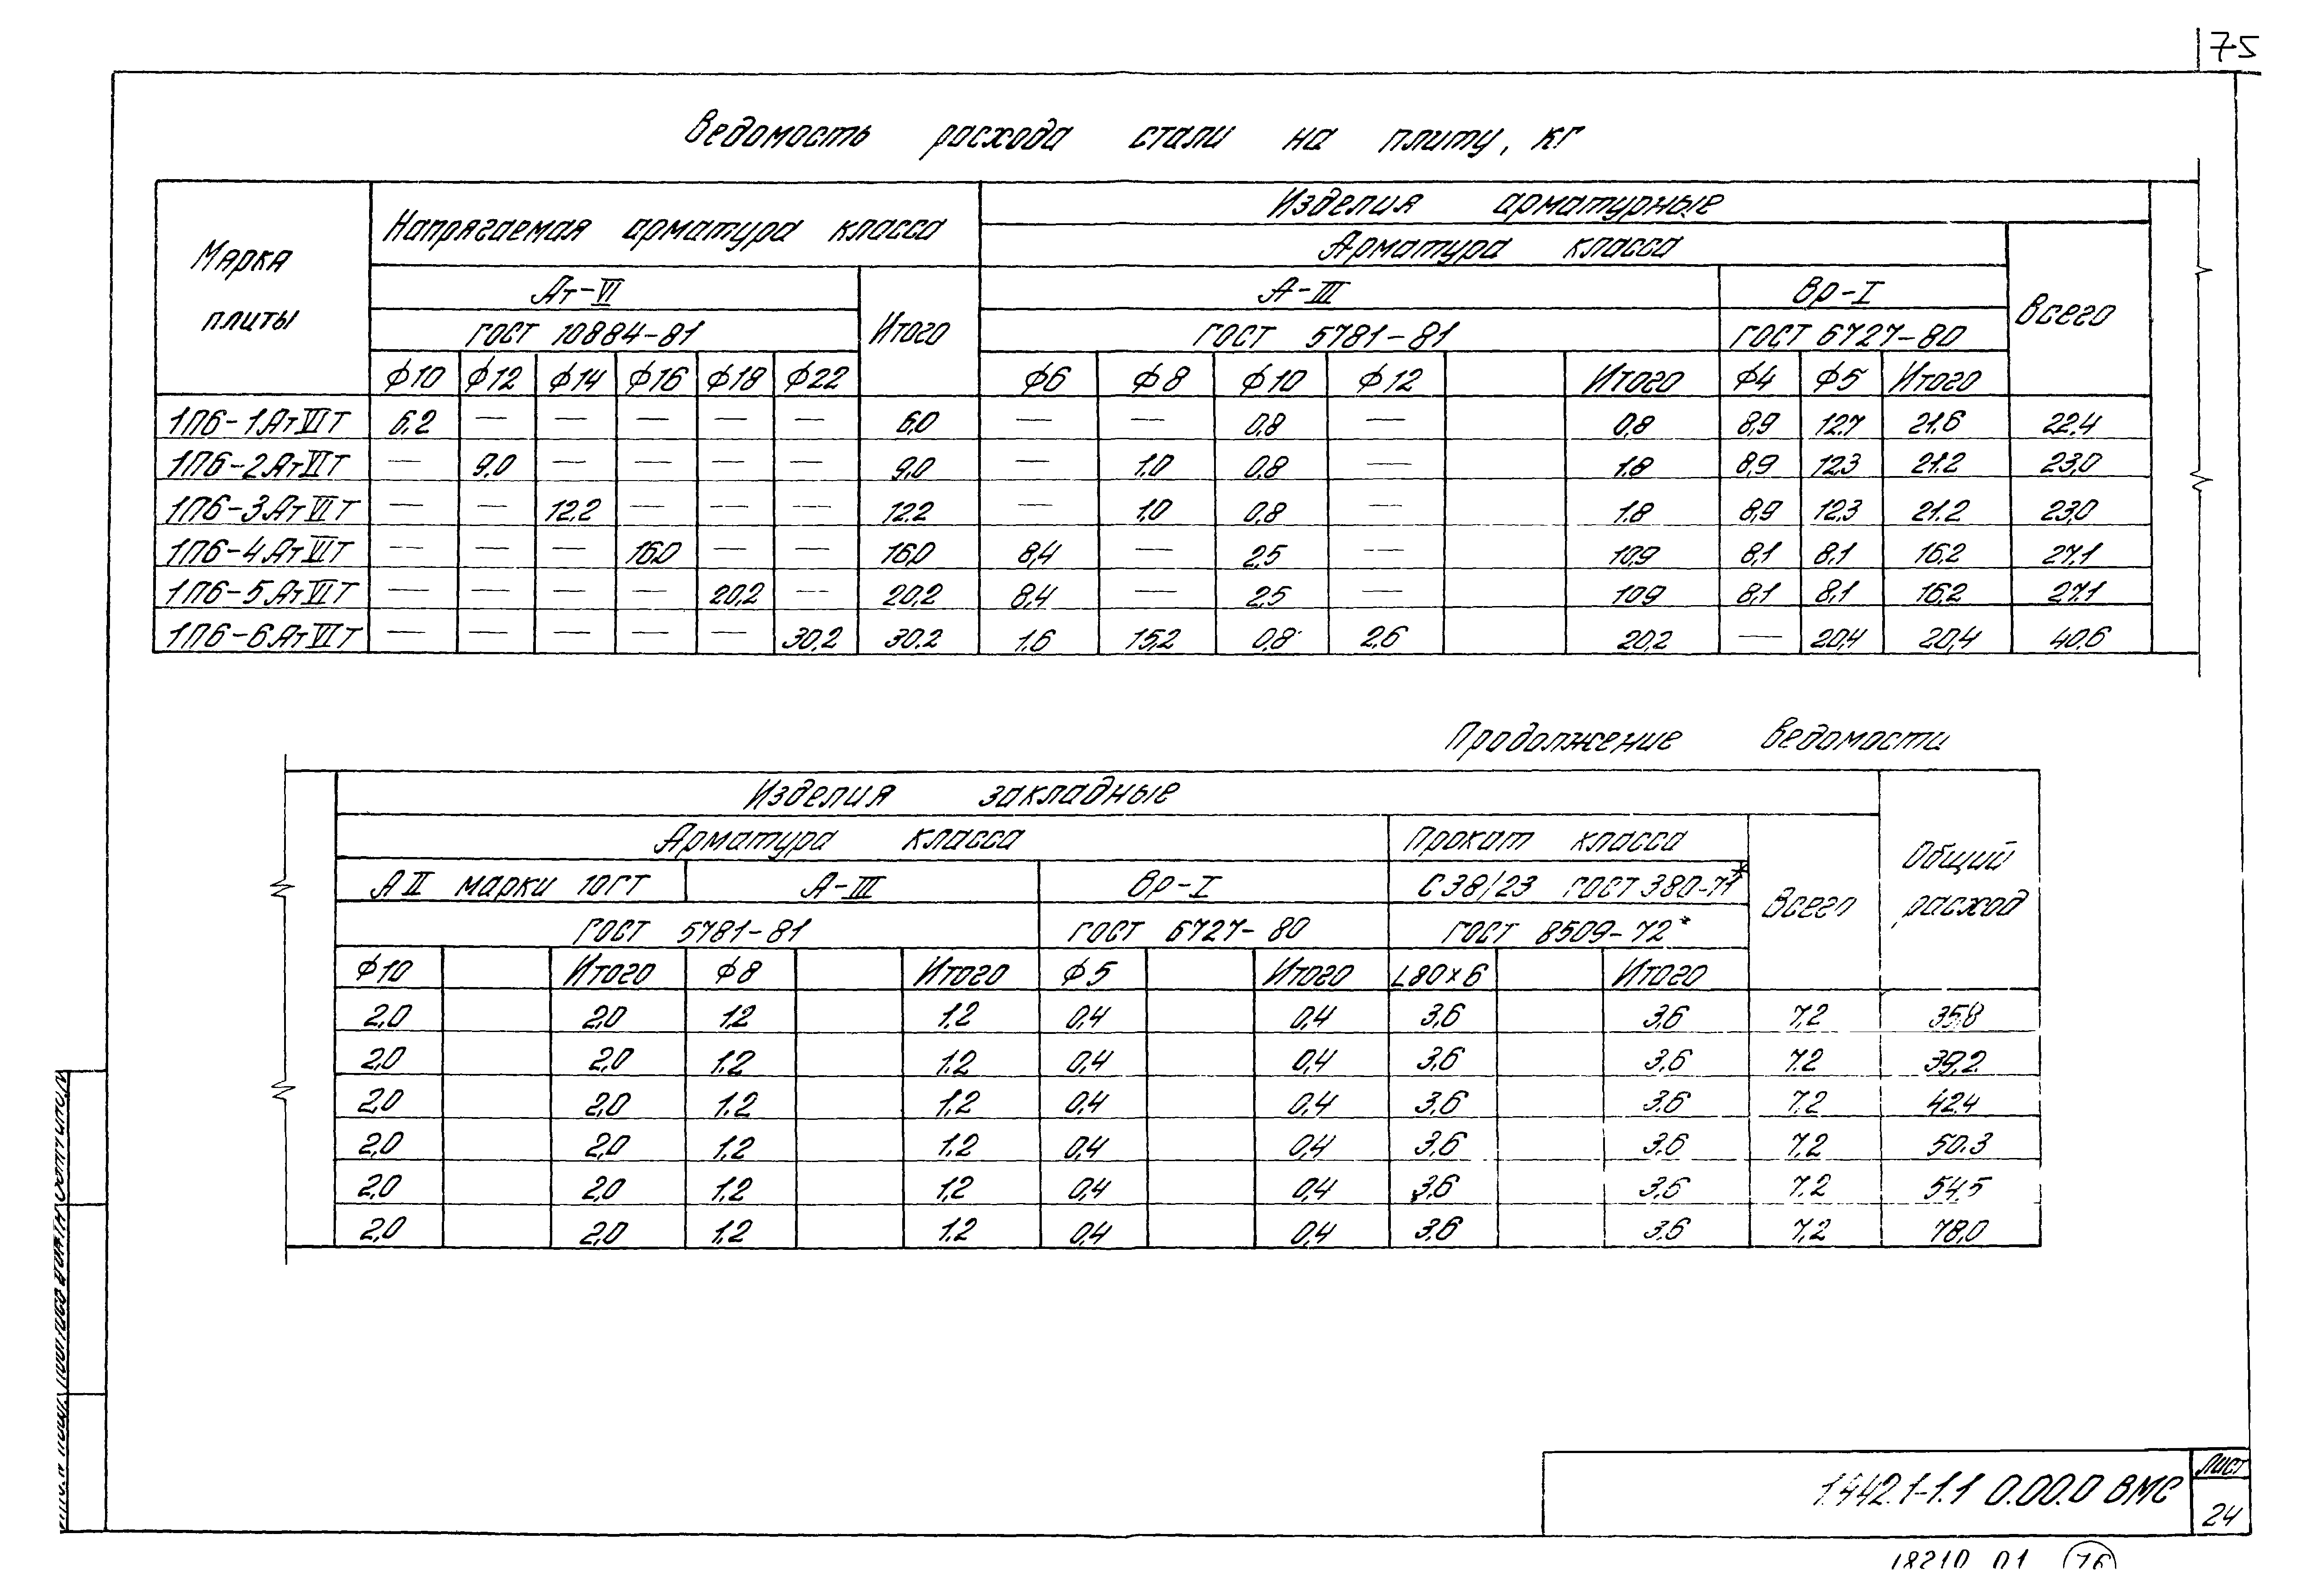 75
Ведомость расхода стали на плиту, кг
Марка плиты
Напрягаемая арматура класса
Изделия арматурные
Арматура класса
Ат-VI
Итого
А-III
Вр-I
Всего
ГОСТ 10884-81
ГОСТ 5781-81
ГОСТ 6727-80
ф10 ф12 ф14 ф16 ф18 ф22 ф6 ф8 ф10 ф12 Итого ф4 ф5 Итого
1П6-1АтVIТ 6,2 — — — — — 6,0 — — 0,8 — 0,8 8,9 12,7 21,6 22,4
1П6-2АтVIТ — 9,0 — — — — 9,0 — 1,0 0,8 — 1,8 8,9 12,3 21,2 23,0
1П6-3АтVIТ — — 12,2 — — — 12,2 — 1,0 0,8 — 1,8 8,9 12,3 21,2 23,0
1П6-4АтVIТ — — — 16,0 — — 16,0 8,4 — 2,5 — 10,9 8,1 8,1 16,2 27,1
1П6-5АтVIТ — — — — 20,2 — 20,2 8,4 — 2,5 — 10,9 8,1 8,1 16,2 27,1
1П6-6АтVIТ — — — — — 30,2 30,2 1,6 15,2 0,8 2,6 20,2 — 20,4 20,4 40,6
Продолжение ведомости
Изделия закладные
Арматура класса
Прокат класса
Всего
Общий расход
АII марки 10ГТ
А-III
Вр-I
С38/23 ГОСТ 380-71*
ГОСТ 5781-81
ГОСТ 6727-80
ГОСТ 8509-72*
ф10 Итого ф8 Итого ф5 Итого L80x6 Итого
2,0 2,0 1,2 1,2 0,4 0,4 3,6 3,6 7,2 35,8
2,0 2,0 1,2 1,2 0,4 0,4 3,6 3,6 7,2 39,2
2,0 2,0 1,2 1,2 0,4 0,4 3,6 3,6 7,2 42,4
2,0 2,0 1,2 1,2 0,4 0,4 3,6 3,6 7,2 50,3
2,0 2,0 1,2 1,2 0,4 0,4 3,6 3,6 7,2 54,5
2,0 2,0 1,2 1,2 0,4 0,4 3,6 3,6 7,2 78,0
1.442.1-1.1 0.00.0 ВМС
Лист
24
18210 01 76